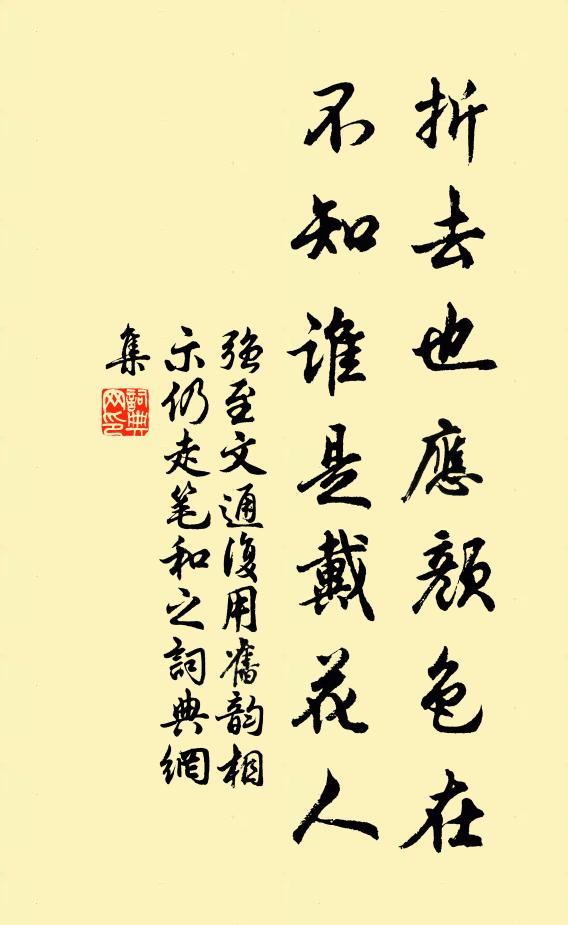 折去也應顏色在
不知誰是戴花人
强至文通復用舊韵相
示仍走笔和之詞典網
集
詞典
网印